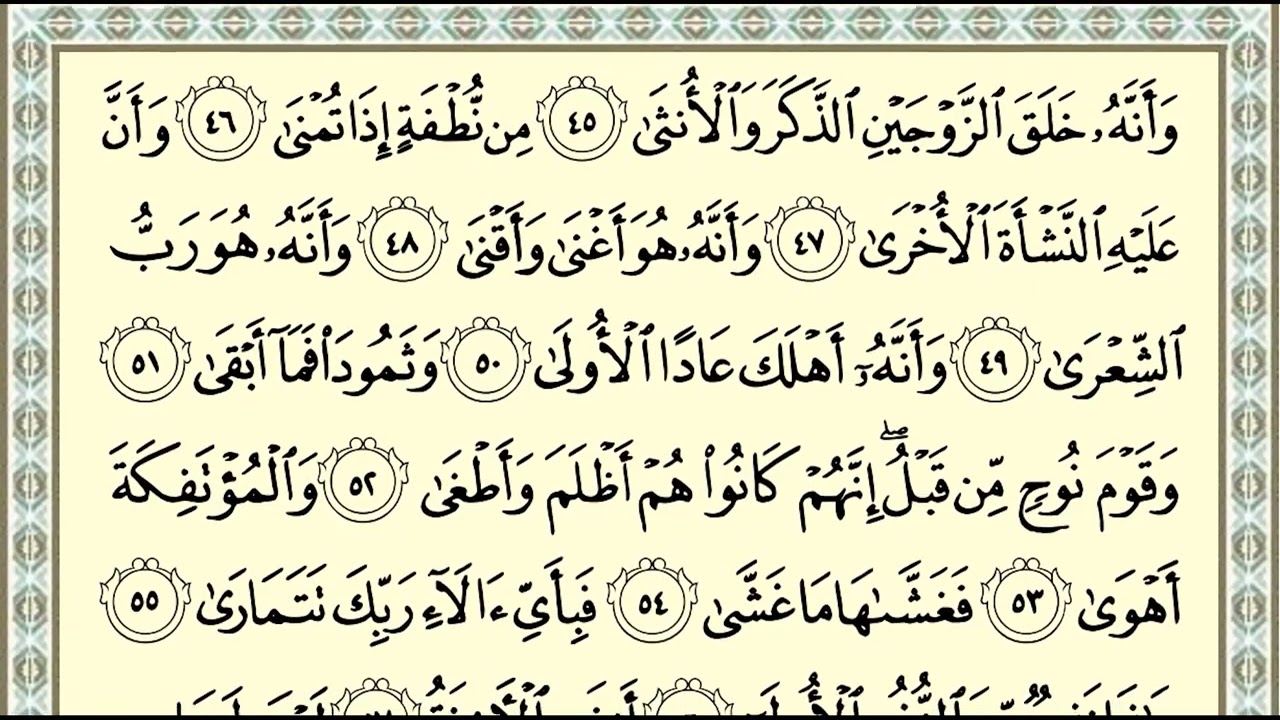 وَأَنَّهُۥ خَلَقَ ٱلزَّوۡجَيۡنِ ٱلذَّكَرَ وَٱلۡأُنثَىٰ ٤٥ مِن نُّطۡفَةٍ إِذَا تُمۡنَىٰ ٤٦ وَأَنَّ
عَلَيۡهِ ٱلنَّشۡأَةَ ٱلۡأُخۡرَىٰ ٤٧ وَأَنَّهُۥ هُوَ أَغۡنَىٰ وَأَقۡنَىٰ ٤٨ وَأَنَّهُۥ هُوَ رَبُّ
ٱلشِّعۡرَىٰ ٤٩ وَأَنَّهُۥٓ أَهۡلَكَ عَادًا ٱلۡأُولَىٰ ٥٠ وَثَمُودَاْ فَمَآ أَبۡقَىٰ ٥١
وَقَوۡمَ نُوحٍ مِّن قَبۡلُۖ إِنَّهُمۡ كَانُواْ هُمۡ أَظۡلَمَ وَأَطۡغَىٰ ٥٢ وَٱلۡمُؤۡتَفِكَةَ
أَهۡوَىٰ ٥٣ فَغَشَّىٰهَا مَا غَشَّىٰ ٥٤ فَبِأَيِّ ءَالَآءِ رَبِّكَ تَتَمَارَىٰ ٥٥